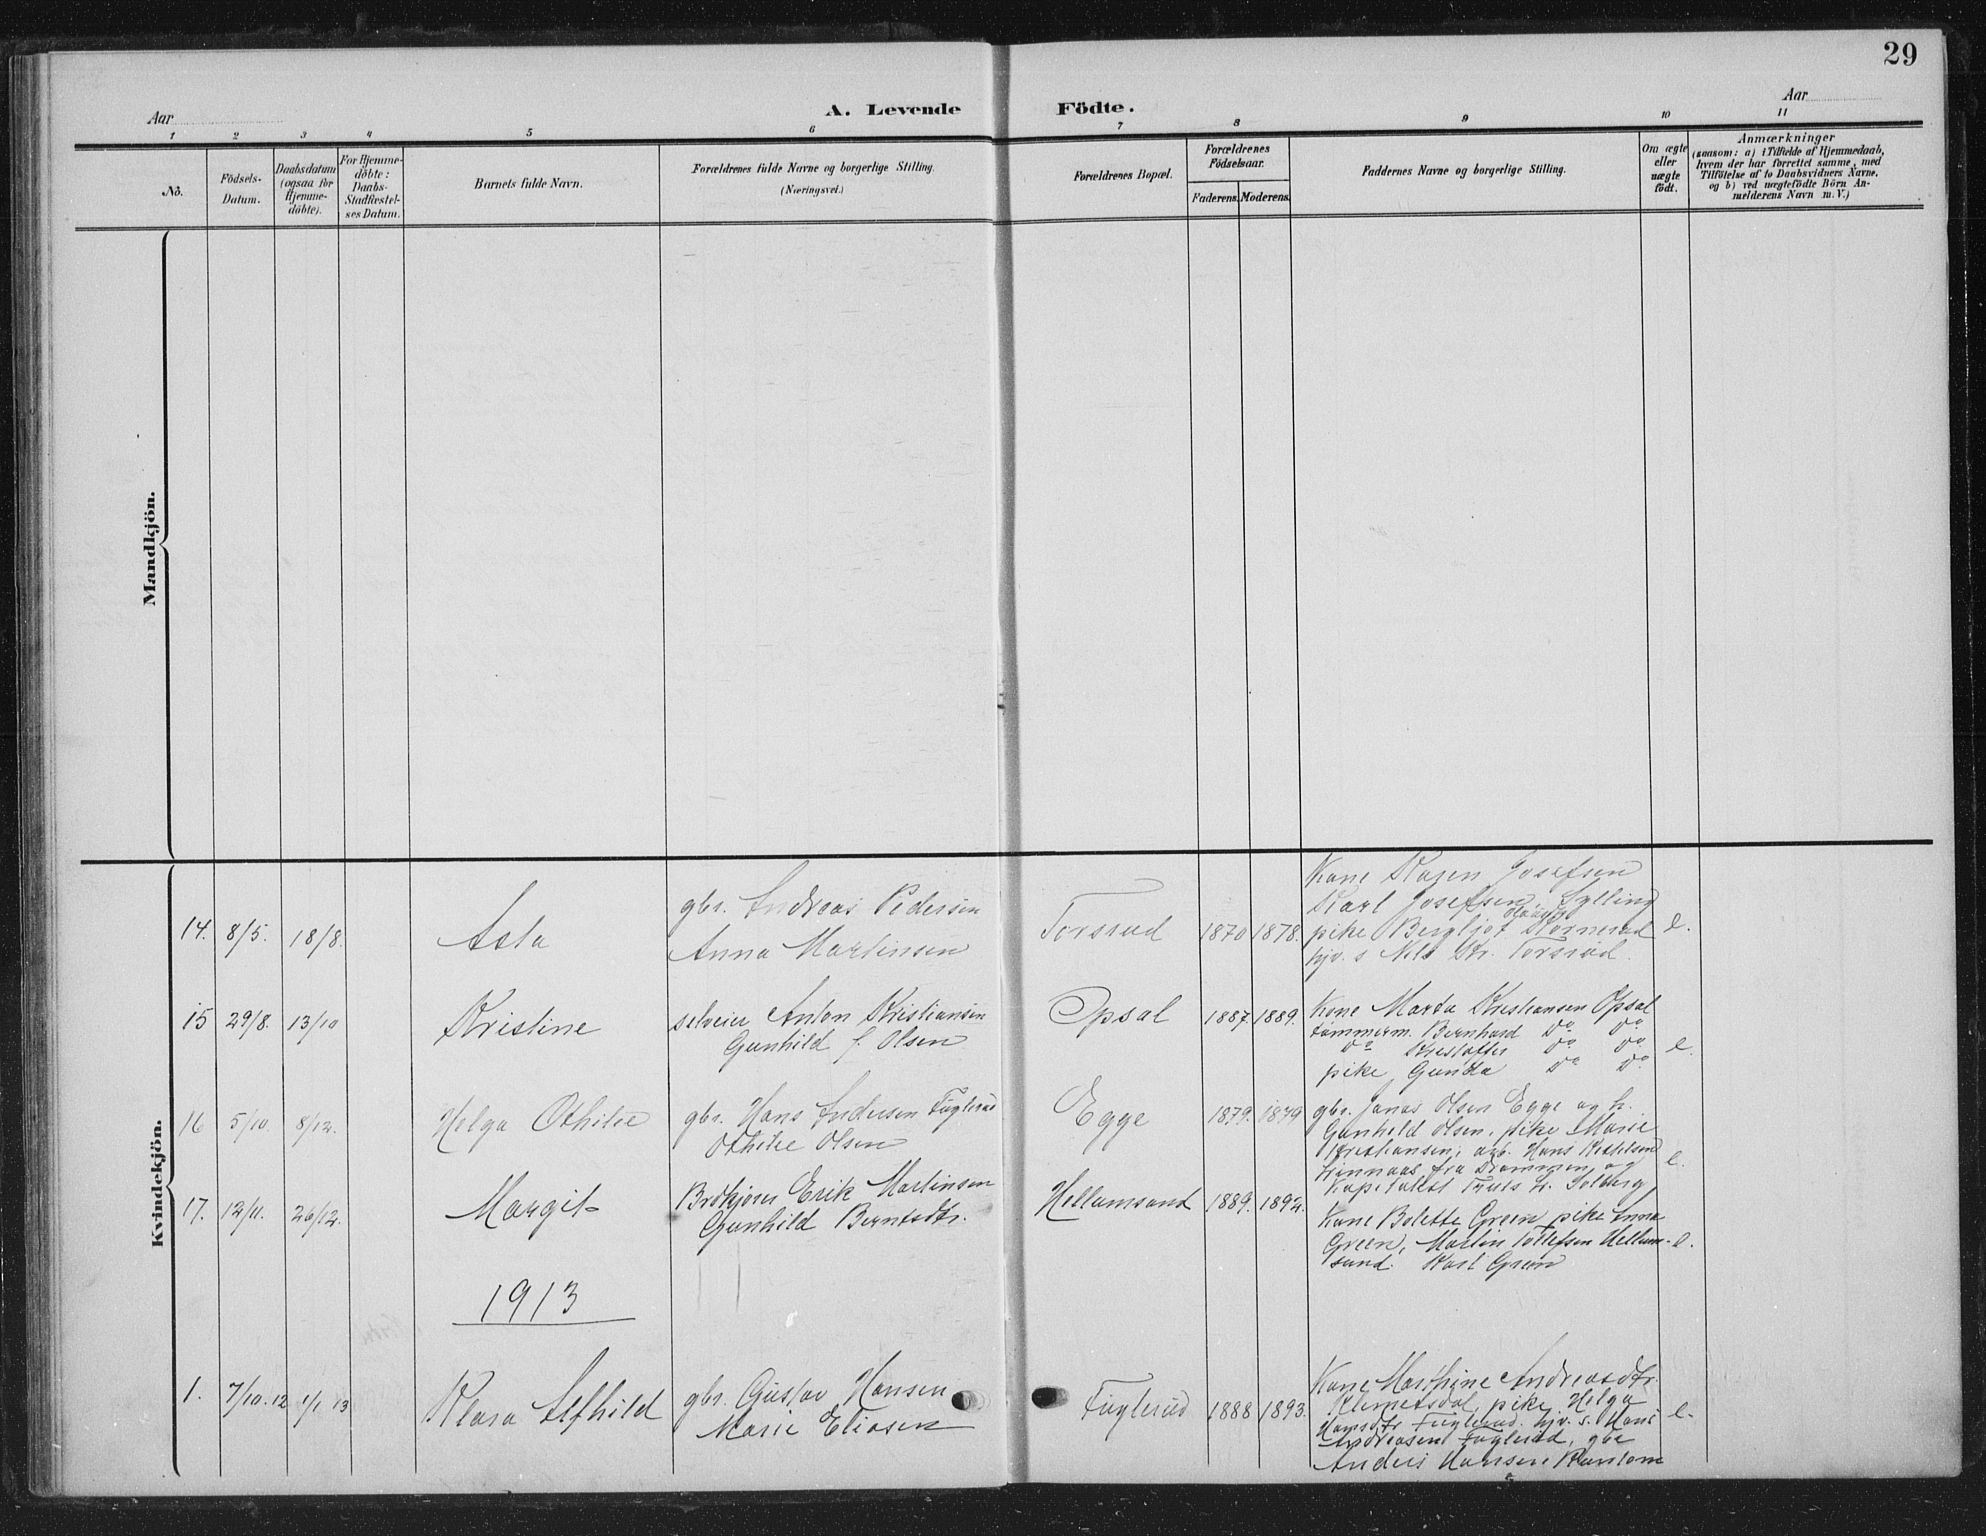 29
A. Levende Födte.
Aar
Aar
1 2 3 4 5 6 7 8 9 10 11
No.
Födsels-
Datum.
Daabsdatum
(ogsaa for
Hjemme-
döbte).
For Hjemme-
döbte:
Daabs-
Stadfæstel-
ses Datum.
Barnets fulde Navn.
Forældrenes fulde Navne og borgerlige Stilling.
(Næringsvei.)
Forældrenes Bopæl.
Forældrenes
Födselsaar.
Faderens. Moderens.
Faddernes Navne og borgerlige Stilling.
Om ægte
eller
uægte
födt.
Anmærkninger
(saasom: a) i Tilfælde af Hjemmedaab,
hvem der har forrettet samme, med
Tilföielse af to Daabsvidners Navne,
og b) ved uægtefödte Börn An-
melderens Navn m. V.)
Mandkjön.
Kvindekjön.
14. 8/5. 18/8. Asta
gbr. Andreas Pedersen
Anna Martinsen
Torsrud 1870 1878.
Kone Kagen Josefsen
Karl Josefsen, Sylling
pike Bergljot
hjv. s Nils Kr. Torsrud
e.
15 29/8. 13/10 Kristine
selveier Anton Kristiansen
Gunhild f. Olsen
Opsal 1887. 1889.
Kone Marta Kristiansen Opsal
tømmerm. Bernhard Do Do
Do Kristoffer Do Do
pike Gunda Do Do
e.
16 5/10. 8/12. Helga Othilie
gbr. Hans Andersen Fuglerud
Othilie Olsen
Egge 1879. 1879
gbr. Jonas Olsen Egge og h.
Gunhild Olsen, pike Marie
Kristiansen, arb. Hans
fra Drammen og
Kapitalist Truls H. Solberg
e.
17. 12/11. 26/12. Margit
Erik Martinsen
Gunhild Berntsdtr.
Hellumsund 1889. 1892.
Kone Bolette Green, pike Anna
Green, Martin Tollefsen Hellum-
sund. Karl Green
e.
1913
1. 7/10. 12 1/1 13 Klara Alfhild
gbr. Gustav Hansen
Marie Eliasen
Fuglerud 1888 1893.
Kone Marthine Andreasdtr.
Klemetsdal, pike Helga
Hansdtr Fuglerud. hjv. s. Hans
Andreasen Fuglerud, gbr
Anders Hansen
e.